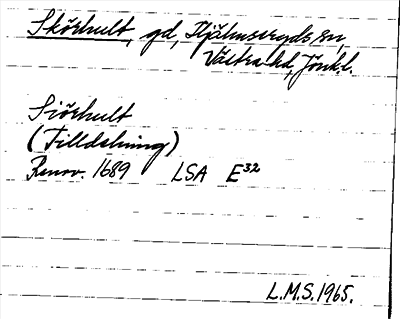 Skörhult, gd, Hjälmseryds sn,
Västra hd, Jönk.l.
Siörhult
(Tilldelning)
Renov. 1689 LSA E³²
L.M.S. 1965.